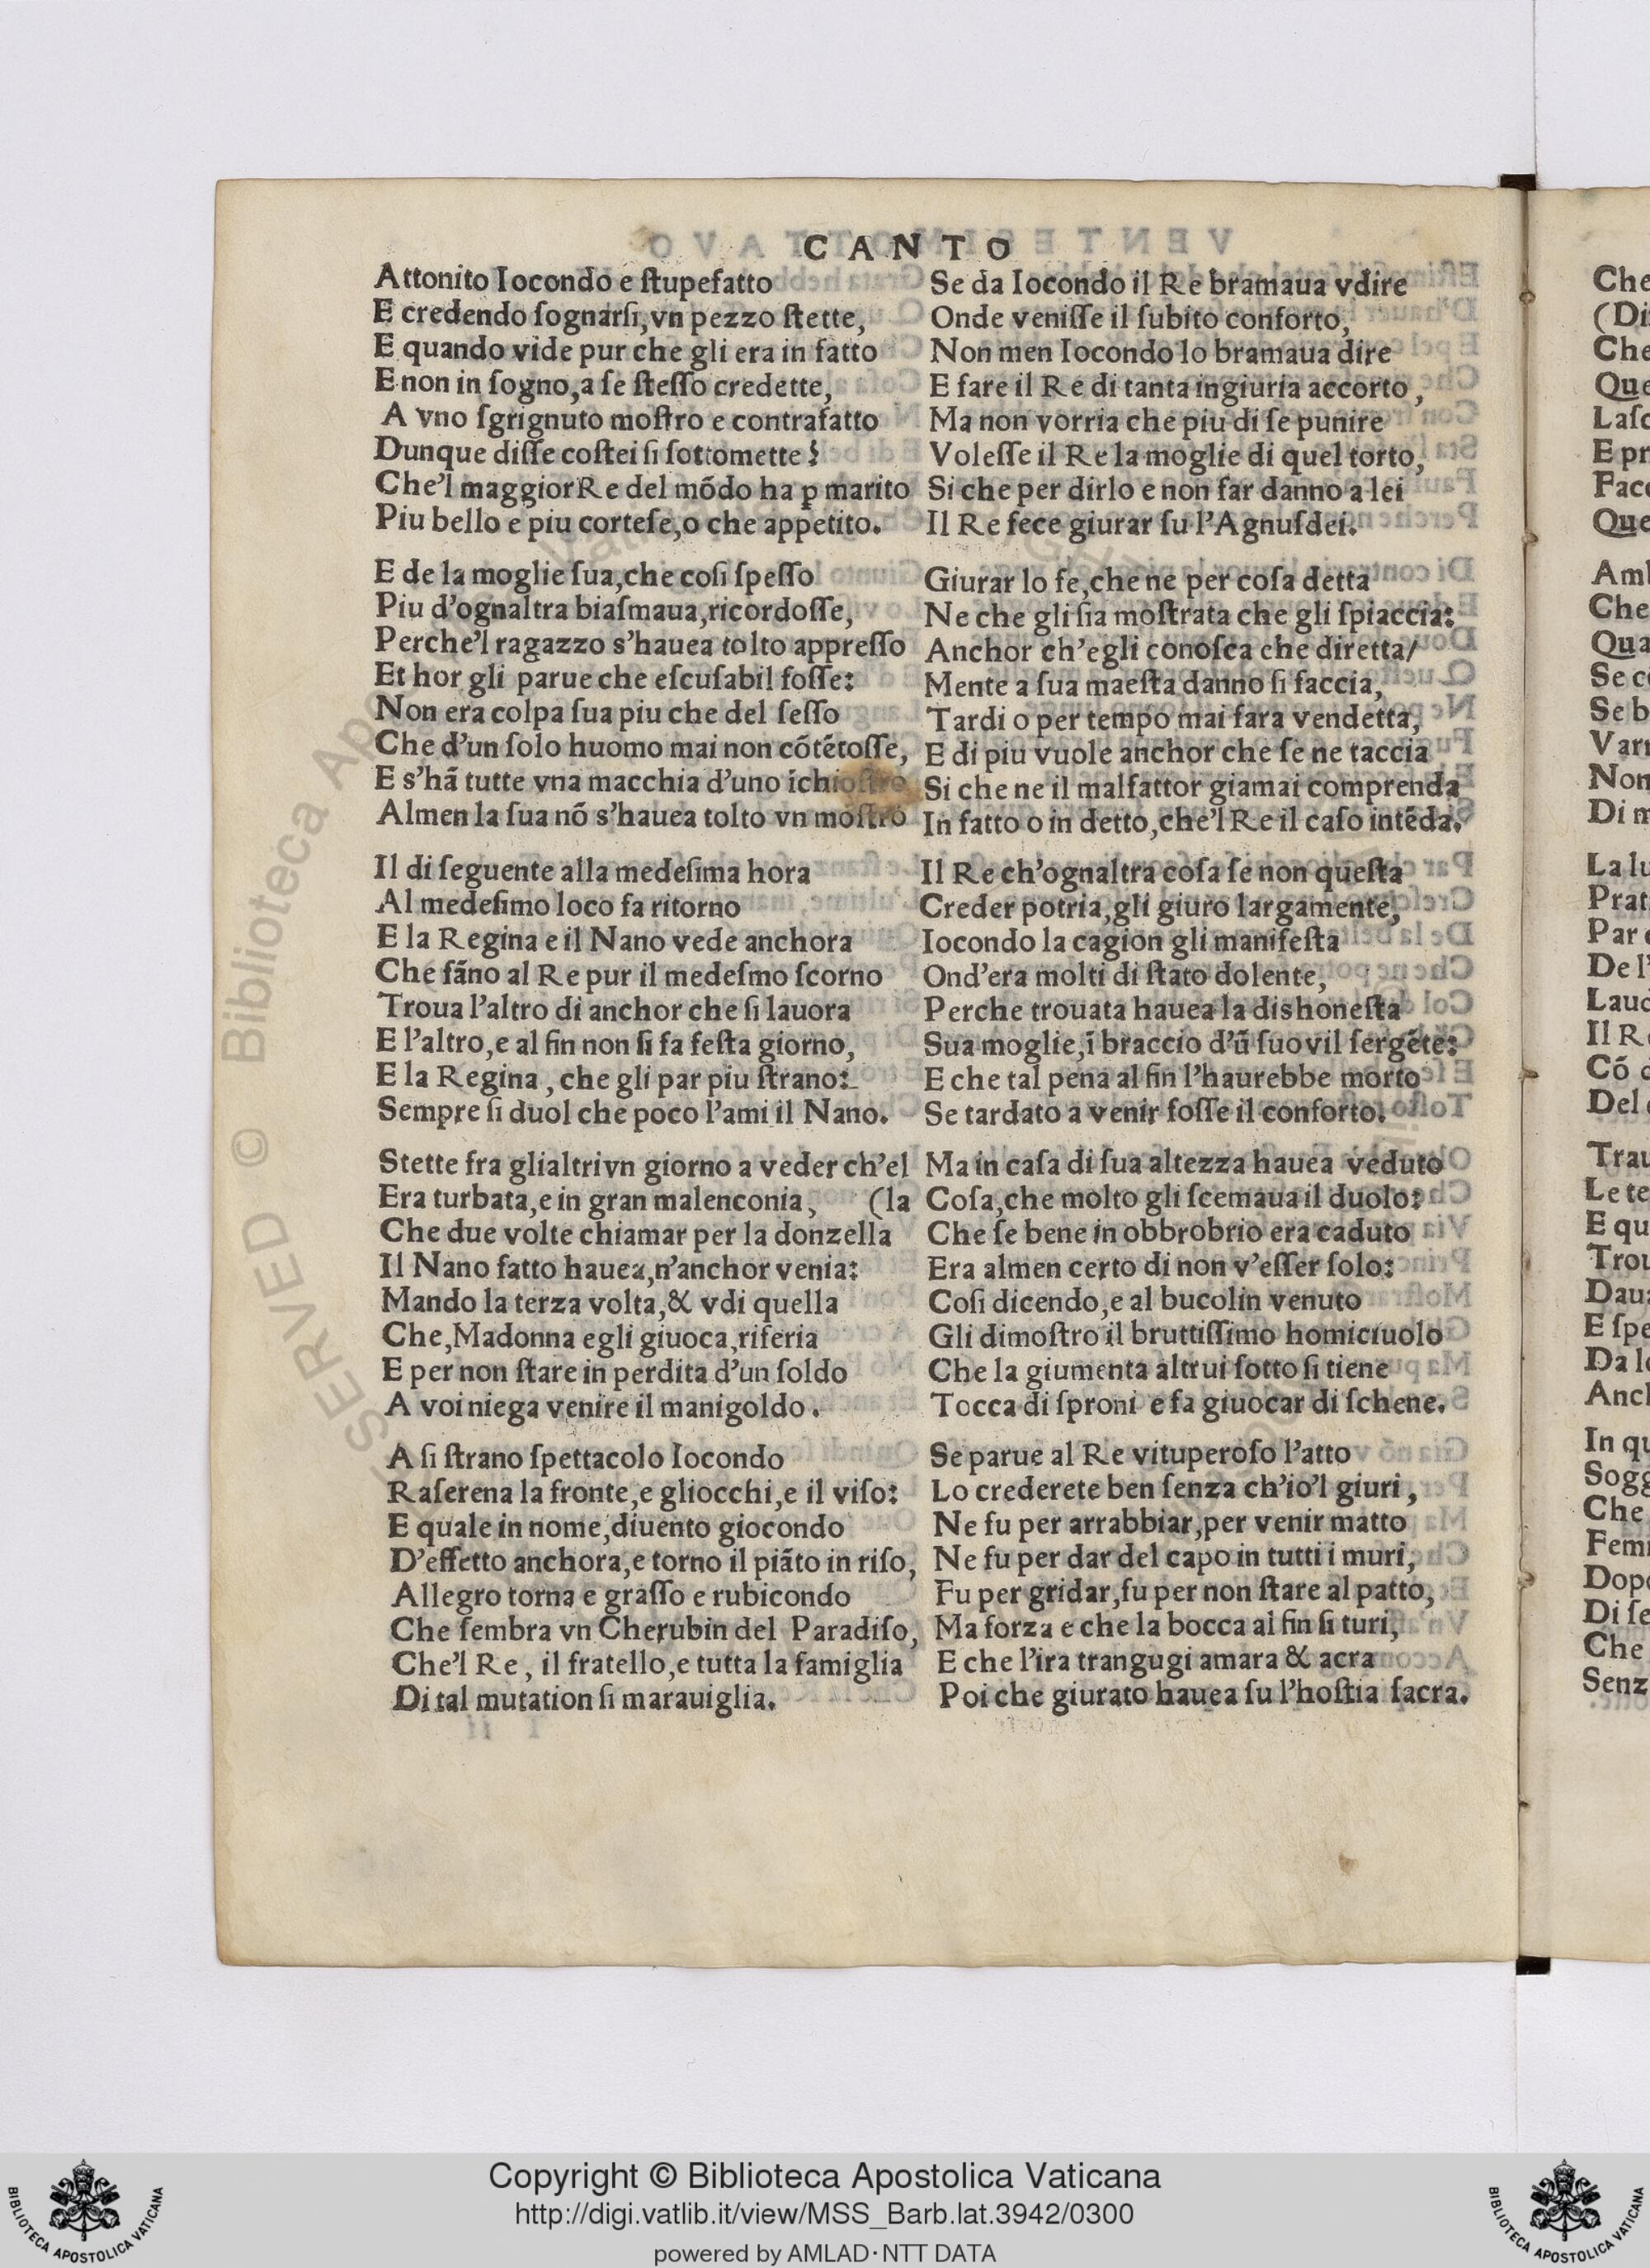 CANTO
Attonito Iocondo e ſtupefatto
E credendo ſognarſi,vn pezzo ſtette,
E quando vide pur che gli era in fatto
E non in ſogno,a ſe ſteſſo credette,
A vno ſgrignuto moſtro e contrafatto
Dunque diſſe coſtei ſi ſottomette?
Che'l maggior Re del mõdo ha ꝑ marito
Piu bello e piu corteſe,o che appetito.
E de la moglie ſua,che coſi ſpeſſo
Piu d'ognaltra biaſmaua,ricordoſſe,
Perche'l ragazzo s'hauea tolto appreſſo
Et hor gli parue che eſcuſabil foſſe:
Non era colpa ſua piu che del ſeſſo
Che d'un ſolo huomo mai non cõtẽtoſſe,
E s'hã tutte vna macchia d'uno ĩchioſtro
Almen la ſua nõ s'hauea tolto vn moſtro
Il di ſeguente alla medeſima hora
Al medeſimo loco fa ritorno
E la Regina e il Nano vede anchora
Che fãno al Re pur il medeſmo ſcorno
Troua l'altro di anchor che ſi lauora
E l'altro,e al fin non ſi fa feſta giorno,
E la Regina, che gli par piu ſtrano:
Sempre ſi duol che poco l'ami il Nano.
Stette fra glialtri vn giorno a veder ch'el
Era turbata,e in gran malenconia, (la
Che due volte chiamar per la donzella
Il Nano fatto hauea,n'anchor venia:
Mando la terza volta,& vdi quella
Che,Madonna egli giuoca,riferia
E per non ſtare in perdita d'un ſoldo
A voi niega venire il manigoldo.
A ſi ſtrano ſpettacolo Iocondo
Raſerena la fronte,e gliocchi,e il viſo:
E quale in nome,diuento giocondo
D'effetto anchora,e torno il piãto in riſo,
Allegro torna e graſſo e rubicondo
Che ſembra vn Cherubin del Paradiſo,
Che'l Re, il fratello,e tutta la famiglia
Di tal mutation ſi marauiglia.
Se da Iocondo il Re bramaua vdire
Onde veniſſe il ſubito conforto,
Non men Iocondo lo bramaua dire
E fare il Re di tanta ingiuria accorto,
Ma non vorria che piu di ſe punire
Voleſſe il Re la moglie di quel torto,
Si che per dirlo e non far danno a lei
Il Re fece giurar ſu l'Agnuſdei.
Giurar lo fe,che ne per coſa detta
Ne che gli ſia moſtrata che gli ſpiaccia:
Anchor ch'egli conoſca che diretta/
Mente a ſua maeſta danno ſi faccia,
Tardi o per tempo mai fara vendetta,
E di piu vuole anchor che ſe ne taccia
Si che ne il malfattor giamai comprenda
In fatto o in detto,che'l Re il caſo intẽda.
Il Re ch'ognaltra coſa ſe non queſta
Creder potria,gli giuro largamente,
Iocondo la cagion gli manifeſta
Ond'era molti di ſtato dolente,
Perche trouata hauea la dishoneſta
Sua moglie,ĩ braccio d'ũ ſuo vil ſergẽte:
E che tal pena al fin l'haurebbe morto
Se tardato a venir foſſe il conforto.
Ma in caſa di ſua altezza hauea veduto
Coſa,che molto gli ſcemaua il duolo:
Che ſe bene in obbrobrio era caduto
Era almen certo di non v'eſſer ſolo:
Coſi dicendo,e al bucolin venuto
Gli dimoſtro il bruttiſſimo homiciuolo
Che la giumenta altrui ſotto ſi tiene
Tocca di ſproni e fa giuocar di ſchene.
Se parue al Re vituperoſo l'atto
Lo crederete ben ſenza ch'io'l giuri,
Ne fu per arrabbiar,per venir matto
Ne fu per dar del capo in tutti i muri,
Fu per gridar,fu per non ſtare al patto,
Ma forza e che la bocca al fin ſi turi,
E che l'ira trangugi amara & acra
Poi che giurato hauea ſu l'hoſtia ſacra.
Copyright © Biblioteca Apostolica Vaticana
http://digi.vatlib.it/view/MSS_Barb.lat.3942/0300
powered by AMLAD·NTT DATA
BIBLIOTECA APOSTOLICA VATICANA
BIBLIOTECA APOSTOLICA VATICANA